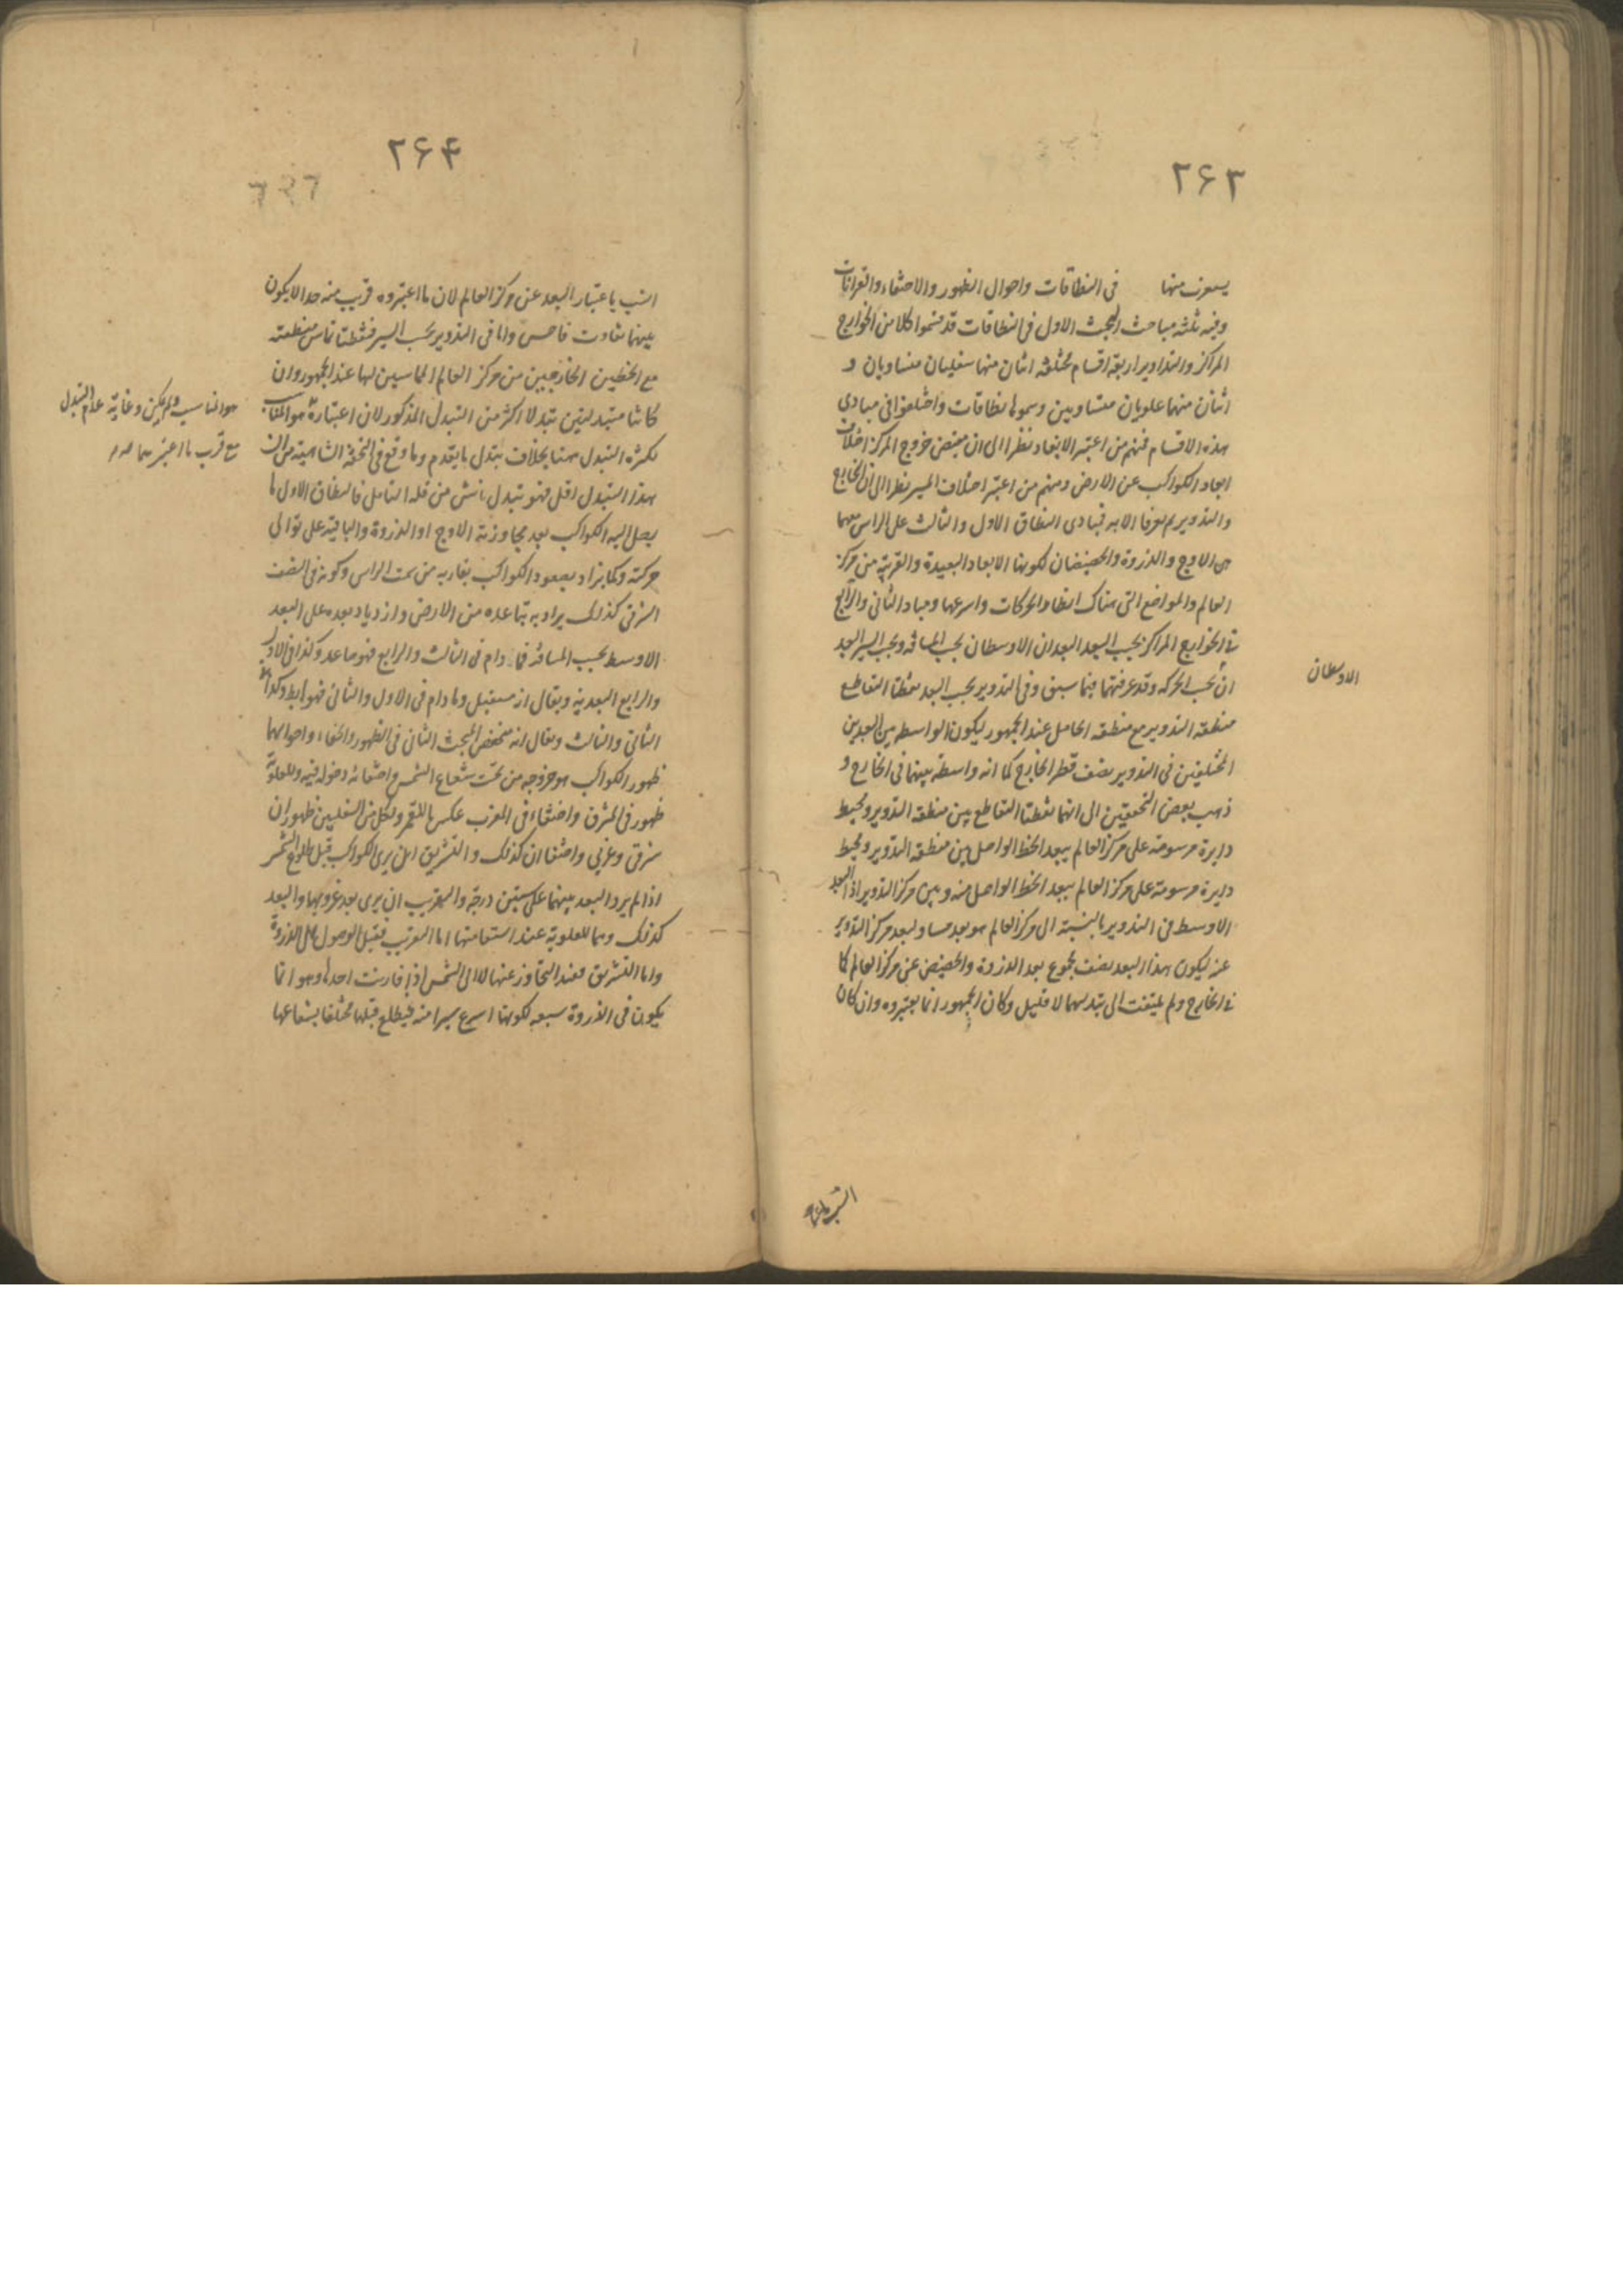 ۲۶۳
يستعرف منها في النطاقات واحوال الظهور والاختفاء والقرانات
وفيه ثلثة مباحث البحث الاول في النطاقات قد قسموا كلا من الخوارج
المراكز والتداوير اربعة اقسام مختلفة اثنان منها سفليان متساويان و
اثنان منهما علويان متساويين وسموها نطاقات واختلفوا في مبادى
هذه الاقسام فمنهم من اعتبر الابعاد نظرا الى ان مقتضى خروج المركز اختلاف
ابعاد الكواكب عن الارض ومنهم من اعتبر اختلاف المسير نظرا الى ان الخارج
والتدوير لم يعرفا الا به فمبادى النطاق الاول والثالث على الراس معهما
من الاوج والذروة والحضيضان لكونها الابعاد البعيدة والقريبة من مركز
العالم والمواضع التى هناك ابطاء الحركات واسرعها ومباد الثانى والرابع
فى الخوارج المراكز بحسب البعد البعدان الاوسطان بحسب المسافة وبحسب السير البعد
ان بحسب الحركه وقد عرفتهما فيما سبق وفى التدوير بحسب البعد نقطتا التقاطع
الاوسطان
منطقه التدوير مع منطقه الحامل عند الجمهور ليكون الواسطه بين البعدين
المختلفين فى التدوير نصف قطر الخارج كما انه واسطة بينهما فى الخارج و
ذهب بعض المحققين الى انهما نقطتا التقاطع بين منطقه التدوير ومحيط
دايرة مرسومة على مركز العالم ببعد الخط الواصل بين منطقه التدوير ومحيط
دايرة مرسومة على مركز العالم ببعد الخط الواصل منه وبين مركز التدوير اذ البعد
الاوسط فى التدوير بالنسبة الى مركز العالم هو بعد مساو لبعد مركز التدوير
عنه ليكون هذا البعد نصف مجموع بعد الذروة والحضيض عن مركز العالم كما
فى الخارج ولم يلتفت الى تبدلهما لا قليل وكان الجمهور انما يعتبروه وان كان
۲۶۴
انسب باعتبار البعد عن مركز العالم لان ما اعتبروه قريب منه جدا لا يكون
بينهما تفاوت فاحش واما فى التدوير بحسب السير فنقطتا تماس منطقته
مع الخطين الخارجين من مركز العالم المماسين لها عند الجمهور وان
كانتا متبدلتين تبدلا اكثر من التبدل المذكور لان اعتباره هو المناسب
هو المناسب ولم يكن رعاية عدم التبدل
مع قرب ما اعتبر
لكثرة التبدل ههنا بخلاف تبدل ما يقدم وما وقع فى التحفة الشاهية من ان
هذا التبدل اقل فهو تبدل ناش من قلة التامل فالنطاق الاول ما
يصل اليه الكواكب بعد مجاوزته الاوج او الذروة والباقية على توالى
حركته وكما يراد بصعود الكواكب تقاربه من سمت الراس وكونه فى النصف
الشرقى كذلك يراد به تباعده من الارض وازدياد بعده على البعد
الاوسط بحسب المسافه فما دام فى الثالث والرابع فهو صاعد وكذا فى الاول
والرابع البعديه ويقال انه مستعل وما دام فى الاول والثانى فهو هابط وكذا فى
الثانى والثالث ويقال انه منخفض البحث الثانى فى الظهور والخفاء واحوالهما
ظهور الكواكب هو خروجه من تحت شعاع الشمس واختفائه دخوله فيه وللعلوية
ظهور فى المشرق واختفاء فى المغرب عكس ما للقمر ولكل من السفليين ظهوران
شرقى وغربى واختفاان كذلك والتشريق ان يرى الكواكب قبل طلوع الشمس
اذا لم يزد البعد بينهما على ستين درجة والتغريب ان يرى بعد غروبها والبعد
كذلك وهما للعلوية عند استقامتها اما التغريب فقبل الوصول الى الذروة
واما التشريق فعند التجاوز عنها لا الى الشمس اذا فارنت احدها وهو انما
يكون فى الذروة سبعه لكونها اسرع سيرا منه فيطلع قبلها مختلفا بشعاعها